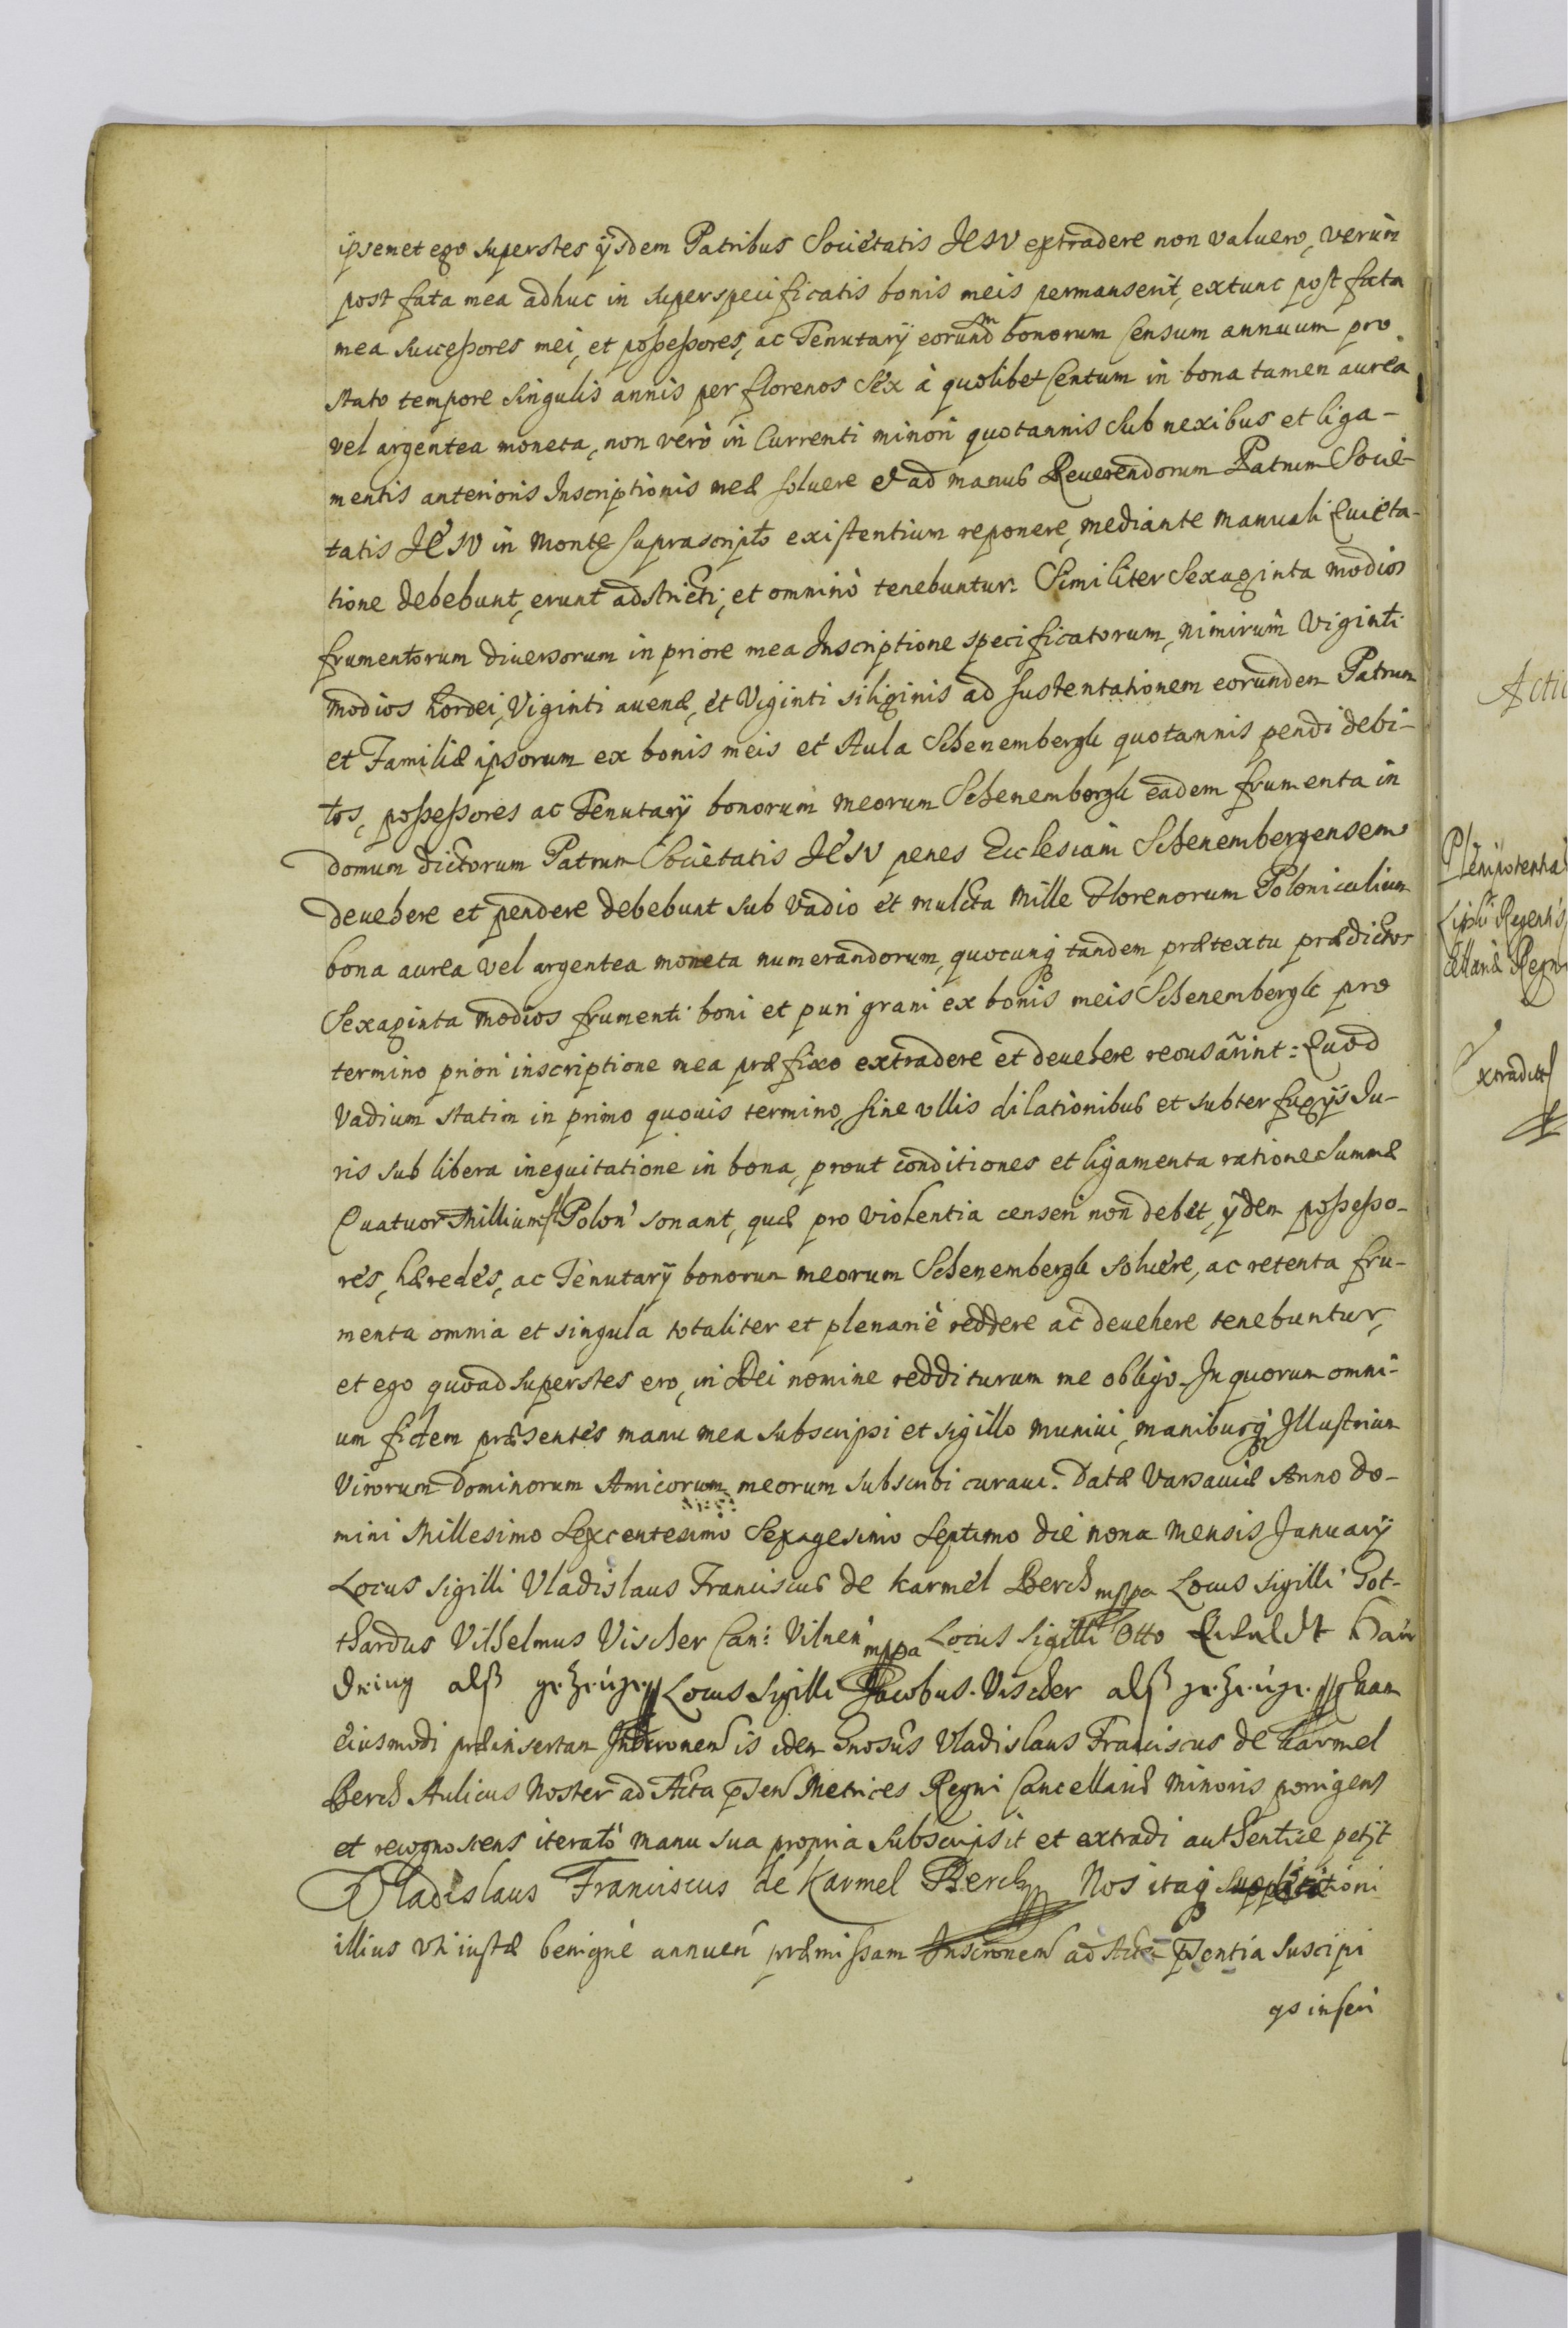 ipsemet ego superstes ijsdem Patribus Societatis JESV extradere non valuero, verùm
post fata mea adhuc in superspecificatis bonis meis permanserit, extunc post fata
mea successores mei, et possessores, ac Tenutarij eorundm bonorum Censum annuum pro
stato tempore singulis annis per florenos Sex à quolibet Centum in bona tamen aurea
vel argentea moneta, non verò in Currenti minori quotannis sub nexibus et liga-
mentis anterioris Inscriptionis meæ soluere et ad manus Reuerendorum Patrum Socie-
tatis JESV in Monte suprascripto existentium reponere, mediante manuali Quieta-
tione debebunt, erunt adstricti, et omninò tenebuntur. Similiter Sexaginta modios
frumentorum diuersorum in priore mea Inscriptione specificatorum, nimirum Viginti
modios hordei, Viginti auenæ, et Viginti siliginis ad sustentationem eorundem Patrum
et Familiæ ipsorum ex bonis meis et Aula Schenembergk quotannis pendi debi-
tos, possessores ac Tenutarij bonorum meorum Schenembergk eadem frumenta in
domum dictorum Patrum Societatis JESV penes Ecclesiam Schenembergensem
deuehere et pendere debebunt sub vadio et mulcta Mille Florenorum Polonicalium
bona aurea vel argentea moneta numerandorum, quocunq tandem prætextu prædictos
Sexaginta modios frumenti boni et puri grani ex bonis meis Schenembergk pro
termino priori inscriptione mea præfixo extradere et deuehere recusarint: Quod
Vadium statim in primo quouis termino, sine vllis dilationibus et subterfugijs Ju-
ris sub libera inequitatione in bona, prout conditiones et ligamenta ratione summæ
Quatuor Millium fl Polon' sonant, quæ pro violentia censeri non debet, ijdem possesso-
res, hæredes, ac Tenutarij bonorum meorum Schenembergk soluere, ac retenta fru-
menta omnia et singula totaliter et plenariè reddere ac deuehere tenebuntur,
et ego quoad superstes ero, in Dei nomine redditurum me obligo. In quorum omni-
um fidem præsentes manu mea subscripsi et sigillo muniui, manibusq Illustrium
Virorum Dominorum Amicorum meorum subscribi curaui. Datæ Varsauiæ Anno Do-
mini Millesimo Sexcentesimo Sexagesimo Septimo die nona Mensis January
Locus Sigilli Vladislaus Franciscus de Karmel Berch mppa Locus Sigilli Got-
thardus Vilhelmus Vischer Can: Vilnen' mppa Locus Sigilli Otto
alß gezeuge Locus Sigilli Jacobus Vischer alß gezeuge
eiusmodi præinsertam is idem Gnosus Vladislaus Franciscus de Karmel
Berch Aulicus Noster ad Acta psen Metrices Regni Cancellariæ Minoris porrigens
et recognoscens iteratò manu sua propria Subscripsit et extradi authentice petijt
Vladislaus Franciscus de Karmel Berch Nos itaq supplicationi
illius vti iustæ benignè annuen præmissam Inscronem ad Acta psentia suscipi
inseri
Actic
Plenipotentia
Regentis
cellariæ Regni
Extradit